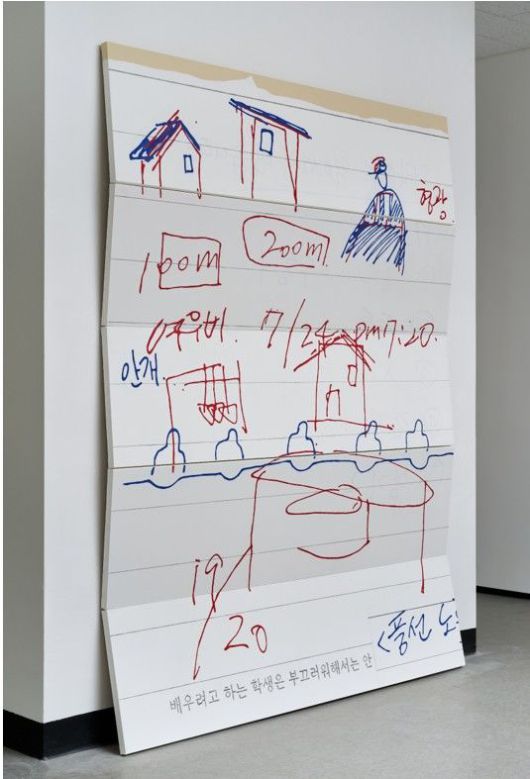 형광
100m 200m
여우비. 7/24 pm 7:20.
안개
19
20
<풍선 노
배우려고 하는 학생은 부끄러워해서는 안